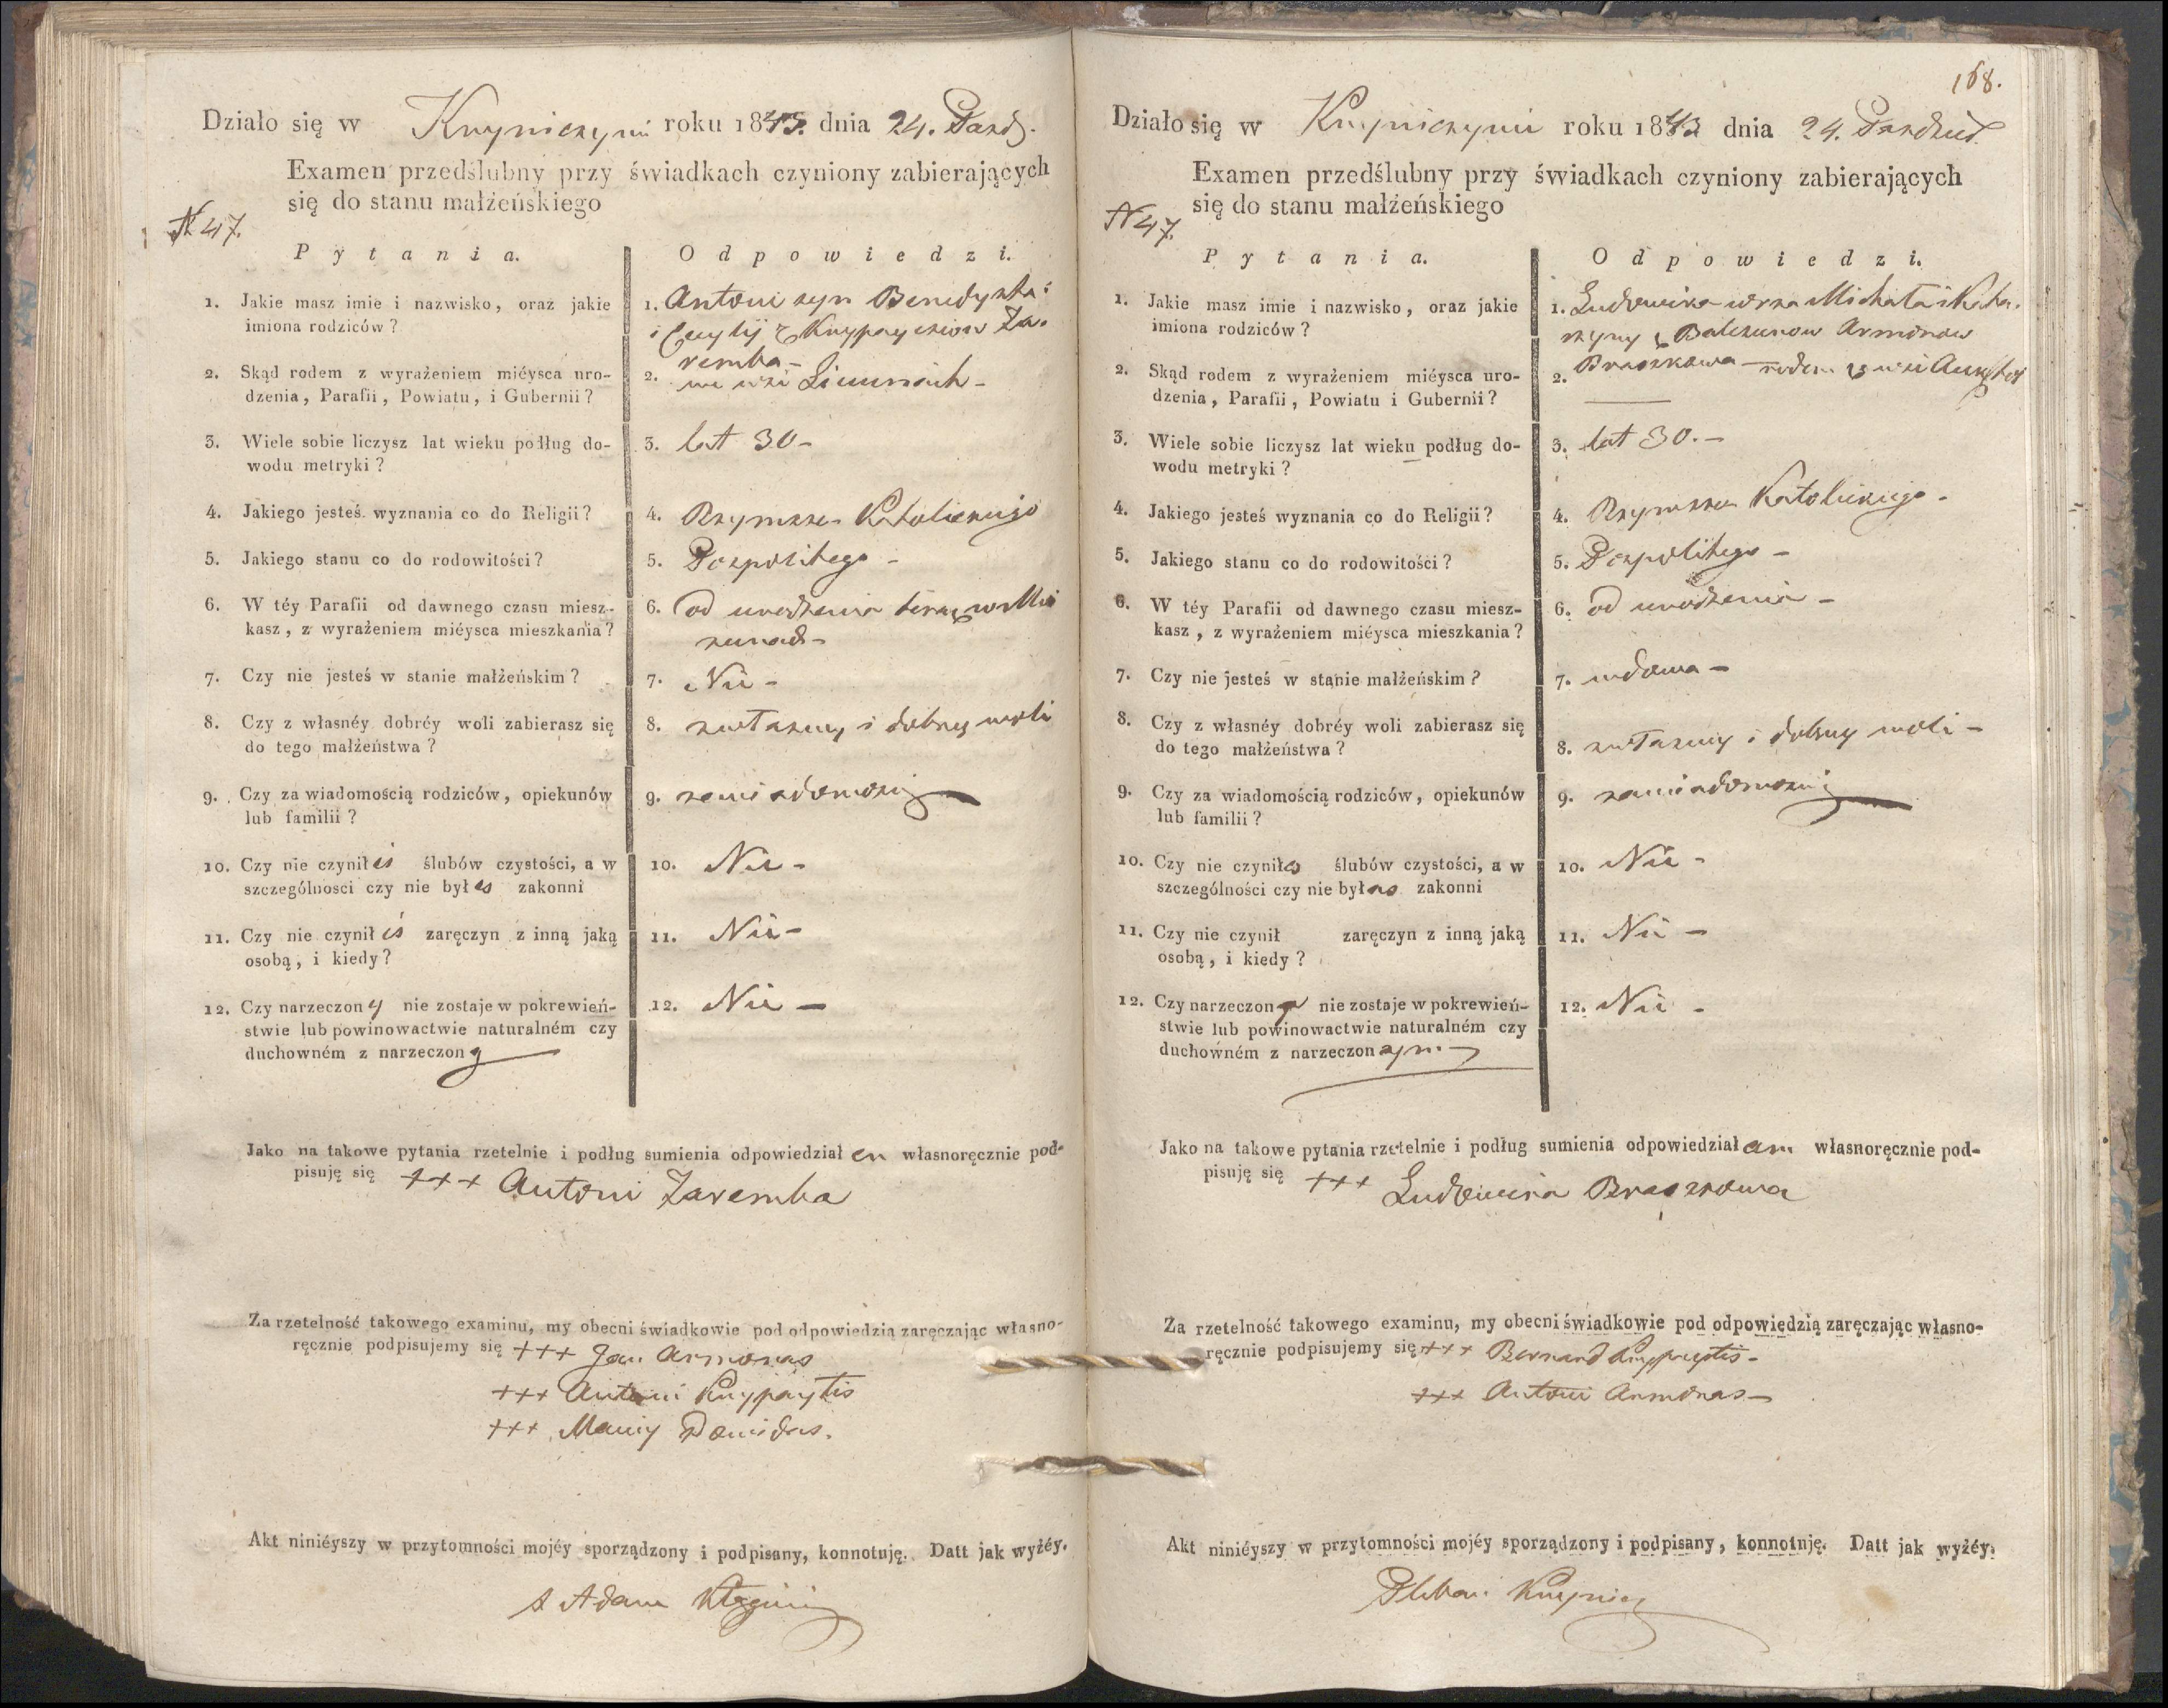 Działo się w Krynicznym roku 1843. dnia 24. Pazdz.
Examen przedślubny przy świadkach czyniony zabierających
się do stanu małżeńskiego
N 47.
Pytania.
Odpowiedzi.
1. Jakie masz imie i nazwisko, oraz jakie
imiona rodziców?
1. Antoni syn Benedykta i
i Cecylij z Knypayciow Za-
remba -
2. Skąd rodem z wyrażeniem miéysca uro-
dzenia, Parafii, Powiatu, i Gubernii?
2. we wsi
3. Wiele sobie liczysz lat wieku podług do-
wodu metryki?
3. lat 30 -
4. Jakiego jesteś wyznania co do Religii?
4. Rzymsko Katolickiego
5. Jakiego stanu co do rodowitości?
5. Pospolitego -
6. W téy Parafii od dawnego czasu miesz-
kasz, z wyrażeniem miéysca mieszkania?
6. od urodzenia teraz
7. Czy nie jesteś w stanie małżeńskim?
7. Nie -
8. Czy z własnéy dobréy woli zabierasz się
do tego małżeństwa?
8. z własney i dobrey woli
9. Czy za wiadomością rodziców, opiekunów
lub familii?
9. za wiadomością
10. Czy nie czyniłeś ślubów czystości, a w
szczególnosci czy nie byłes zakonni
10. Nie -
11. Czy nie czynił eś zaręczyn z inną jaką
osobą, i kiedy?
11. Nie -
12. Czy narzeczony nie zostaje w pokrewień-
stwie lub powinowactwie naturalném czy
duchowném z narzeczoną
12. Nie -
Jako na takowe pytania rzetelnie i podług sumienia odpowiedział em własnoręcznie pod-
pisuję się +++ Antoni Zaremba
Za rzetelność takowego examinu, my obecni świadkowie pod odpowiedzią zaręczając własno-
ręcznie podpisujemy się +++ Jan Armonas
+++ Antoni Knypaytis
+++ Maciey
Akt niniéyszy w przytomności mojéy sporządzony i podpisany, konnotuję. Datt jak wyżéy.
X Adam
168.
Działo się w Krynicznym roku 1843 dnia 24. Pazdzier.
Examen przedślubny przy świadkach czyniony zabierających
się do stanu małżeńskiego
N 47.
Pytania.
Odpowiedzi.
1. Jakie masz imie i nazwisko, oraz jakie
imiona rodziców?
1. Ludowika corka Michała i Kata-
rzyny z Balczunow Armonow
Braszkowa - rodem z wsi
2. Skąd rodem z wyrażeniem miéysca uro-
dzenia, Parafii, Powiatu i Gubernii?
2.
3. Wiele sobie liczysz lat wieku podług do-
wodu metryki?
3. lat 30. -
4. Jakiego jesteś wyznania co do Religii?
4. Rzymsko Katolickiego -
5. Jakiego stanu co do rodowitości?
5. Pospolitego -
6. W téy Parafii od dawnego czasu miesz-
kasz, z wyrażeniem miéysca mieszkania?
6. od urodzenia -
7. Czy nie jesteś w stanie małżeńskim?
7. wdowa -
8. Czy z własnéy dobréy woli zabierasz się
do tego małżeństwa?
8. z własney i dobrey woli -
9. Czy za wiadomością rodziców, opiekunów
lub familii?
9. za wiadomością
10. Czy nie czyniłaś ślubów czystości, a w
szczególności czy nie byłas zakonni
10. Nie -
11. Czy nie czynił zaręczyn z inną jaką
osobą, i kiedy?
11. Nie -
12. Czy narzeczona nie zostaje w pokrewień-
stwie lub powinowactwie naturalném czy
duchowném z narzeczonym
12. Nie -
Jako na takowe pytania rzetelnie i podług sumienia odpowiedział am własnoręcznie pod-
pisuję się +++ Ludowika Braszkowa
Za rzetelność takowego examinu, my obecni świadkowie pod odpowiędzią zaręczając własno-
ręcznie podpisujemy się +++ Bernard Knypaytis -
+++ Antoni Armonas -
Akt niniéyszy w przytomności mojéy sporządzony i podpisany, konnotuję. Datt jak wyżéy.
Pleban